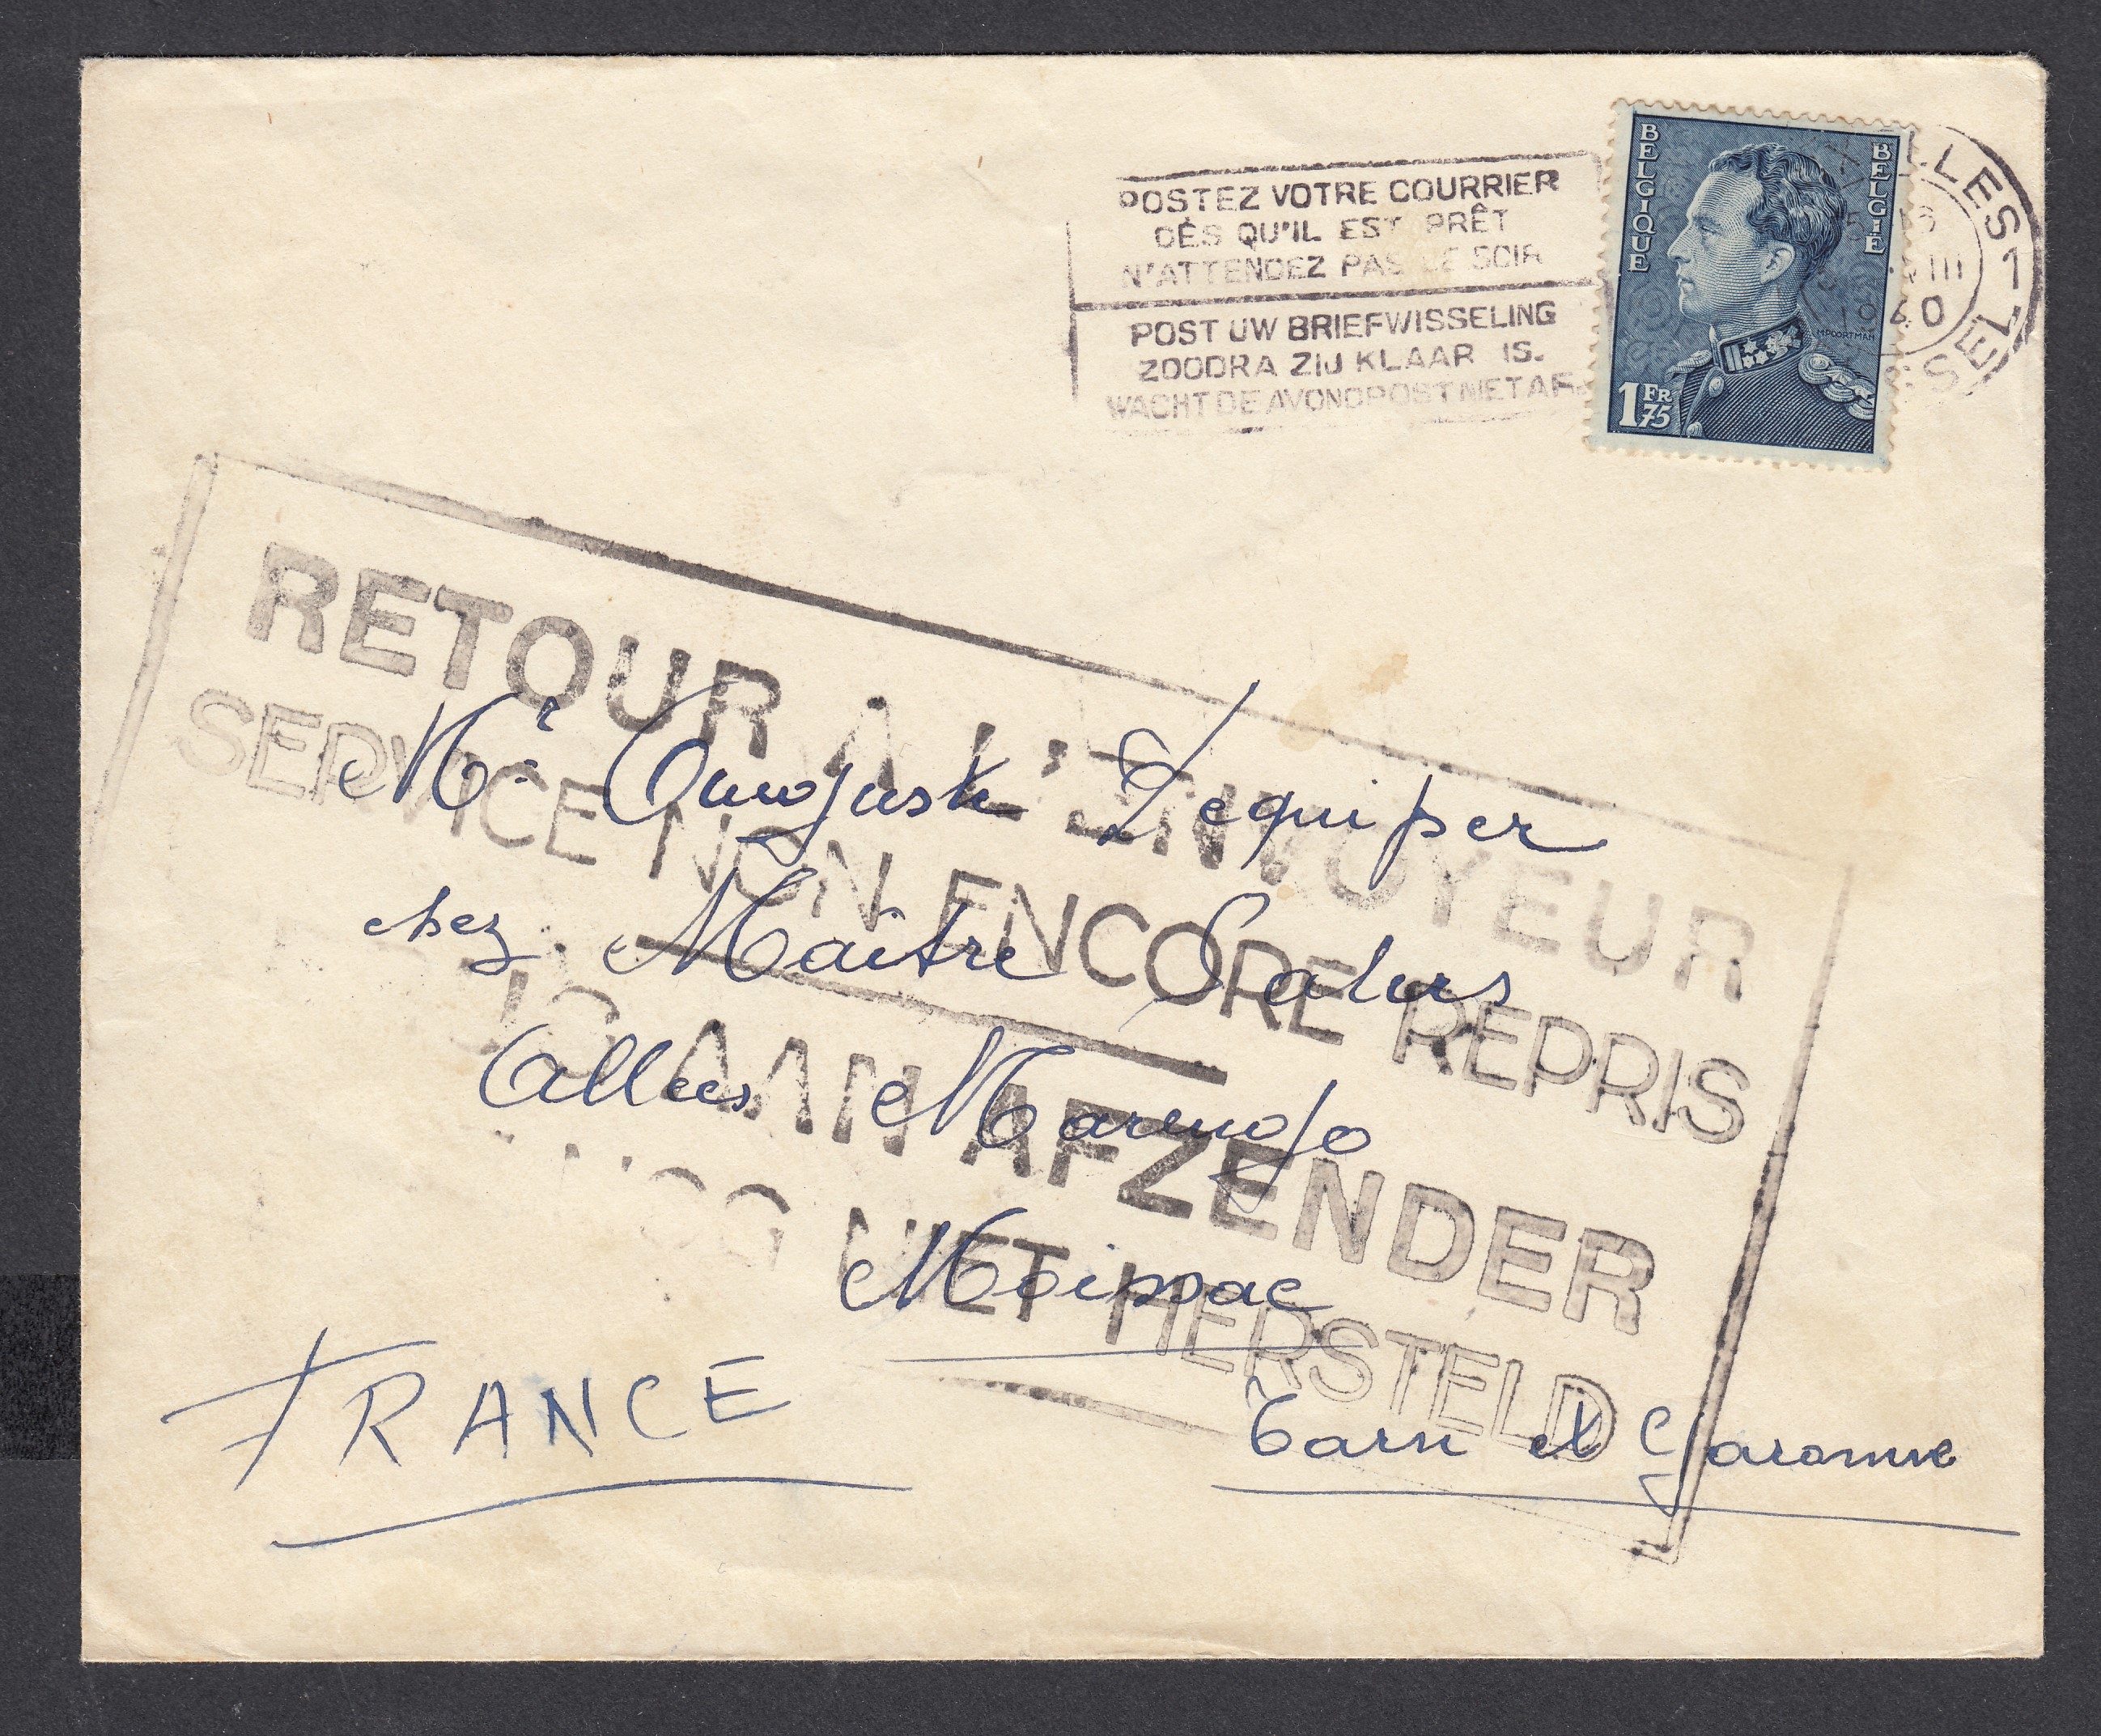 POSTEZ VOTRE COURRIER
DÈS QU'IL EST PRÊT
N'ATTENDEZ PAS LE SOIR
POST UW BRIEFWISSELING
ZOODRA ZIJ KLAAR IS.
WACHT DE AVONDPOST NIET AF
BELGIQUE
BELGIË
1 FR 75
M.POORTMAN
LLES-1
E
VIII
1960
RETOUR A L'ENVOYEUR
SERVICE NON ENCORE REPRIS
UG AAN AFZENDER
NOG NIET HERSTELD
Mr. Auguste Lequiper
chez Maître
Allées Marengo
Moissac
FRANCE
Tarn et Garonne